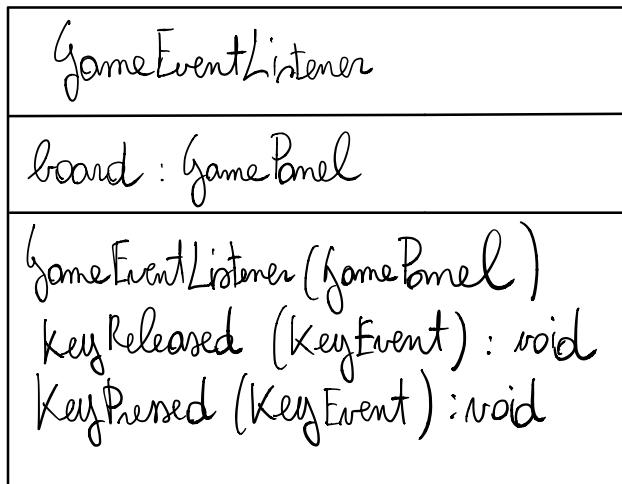 GameEventListener
board : GamePanel
GameEventListener (GamePanel)
KeyReleased (KeyEvent) : void
KeyPressed (KeyEvent) : void